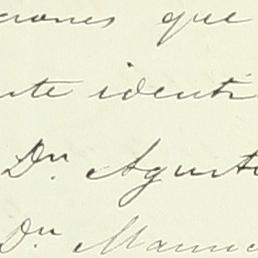 ciones que
te identi
Dn. Agustí
Dn. Manue